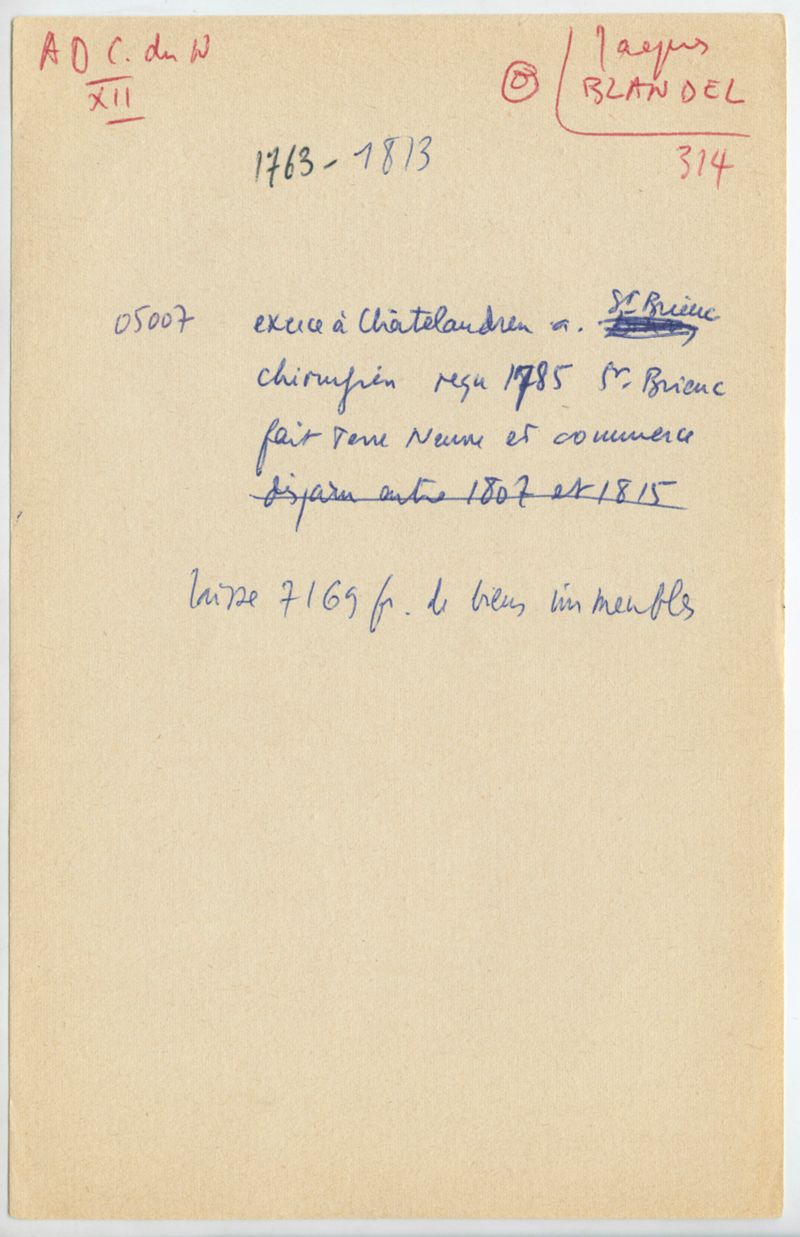 A D C. du N
XII
Jacques
BLANDEL
314
1763 - 1813
05007 exerce à Châtelaudren a. St Brieuc
chirurgien reçu 1785 St. Brieuc
fait Terre Neuve et commerce
disparu entre 1807 et 1815
laisse 7169 fr. de biens immeubles